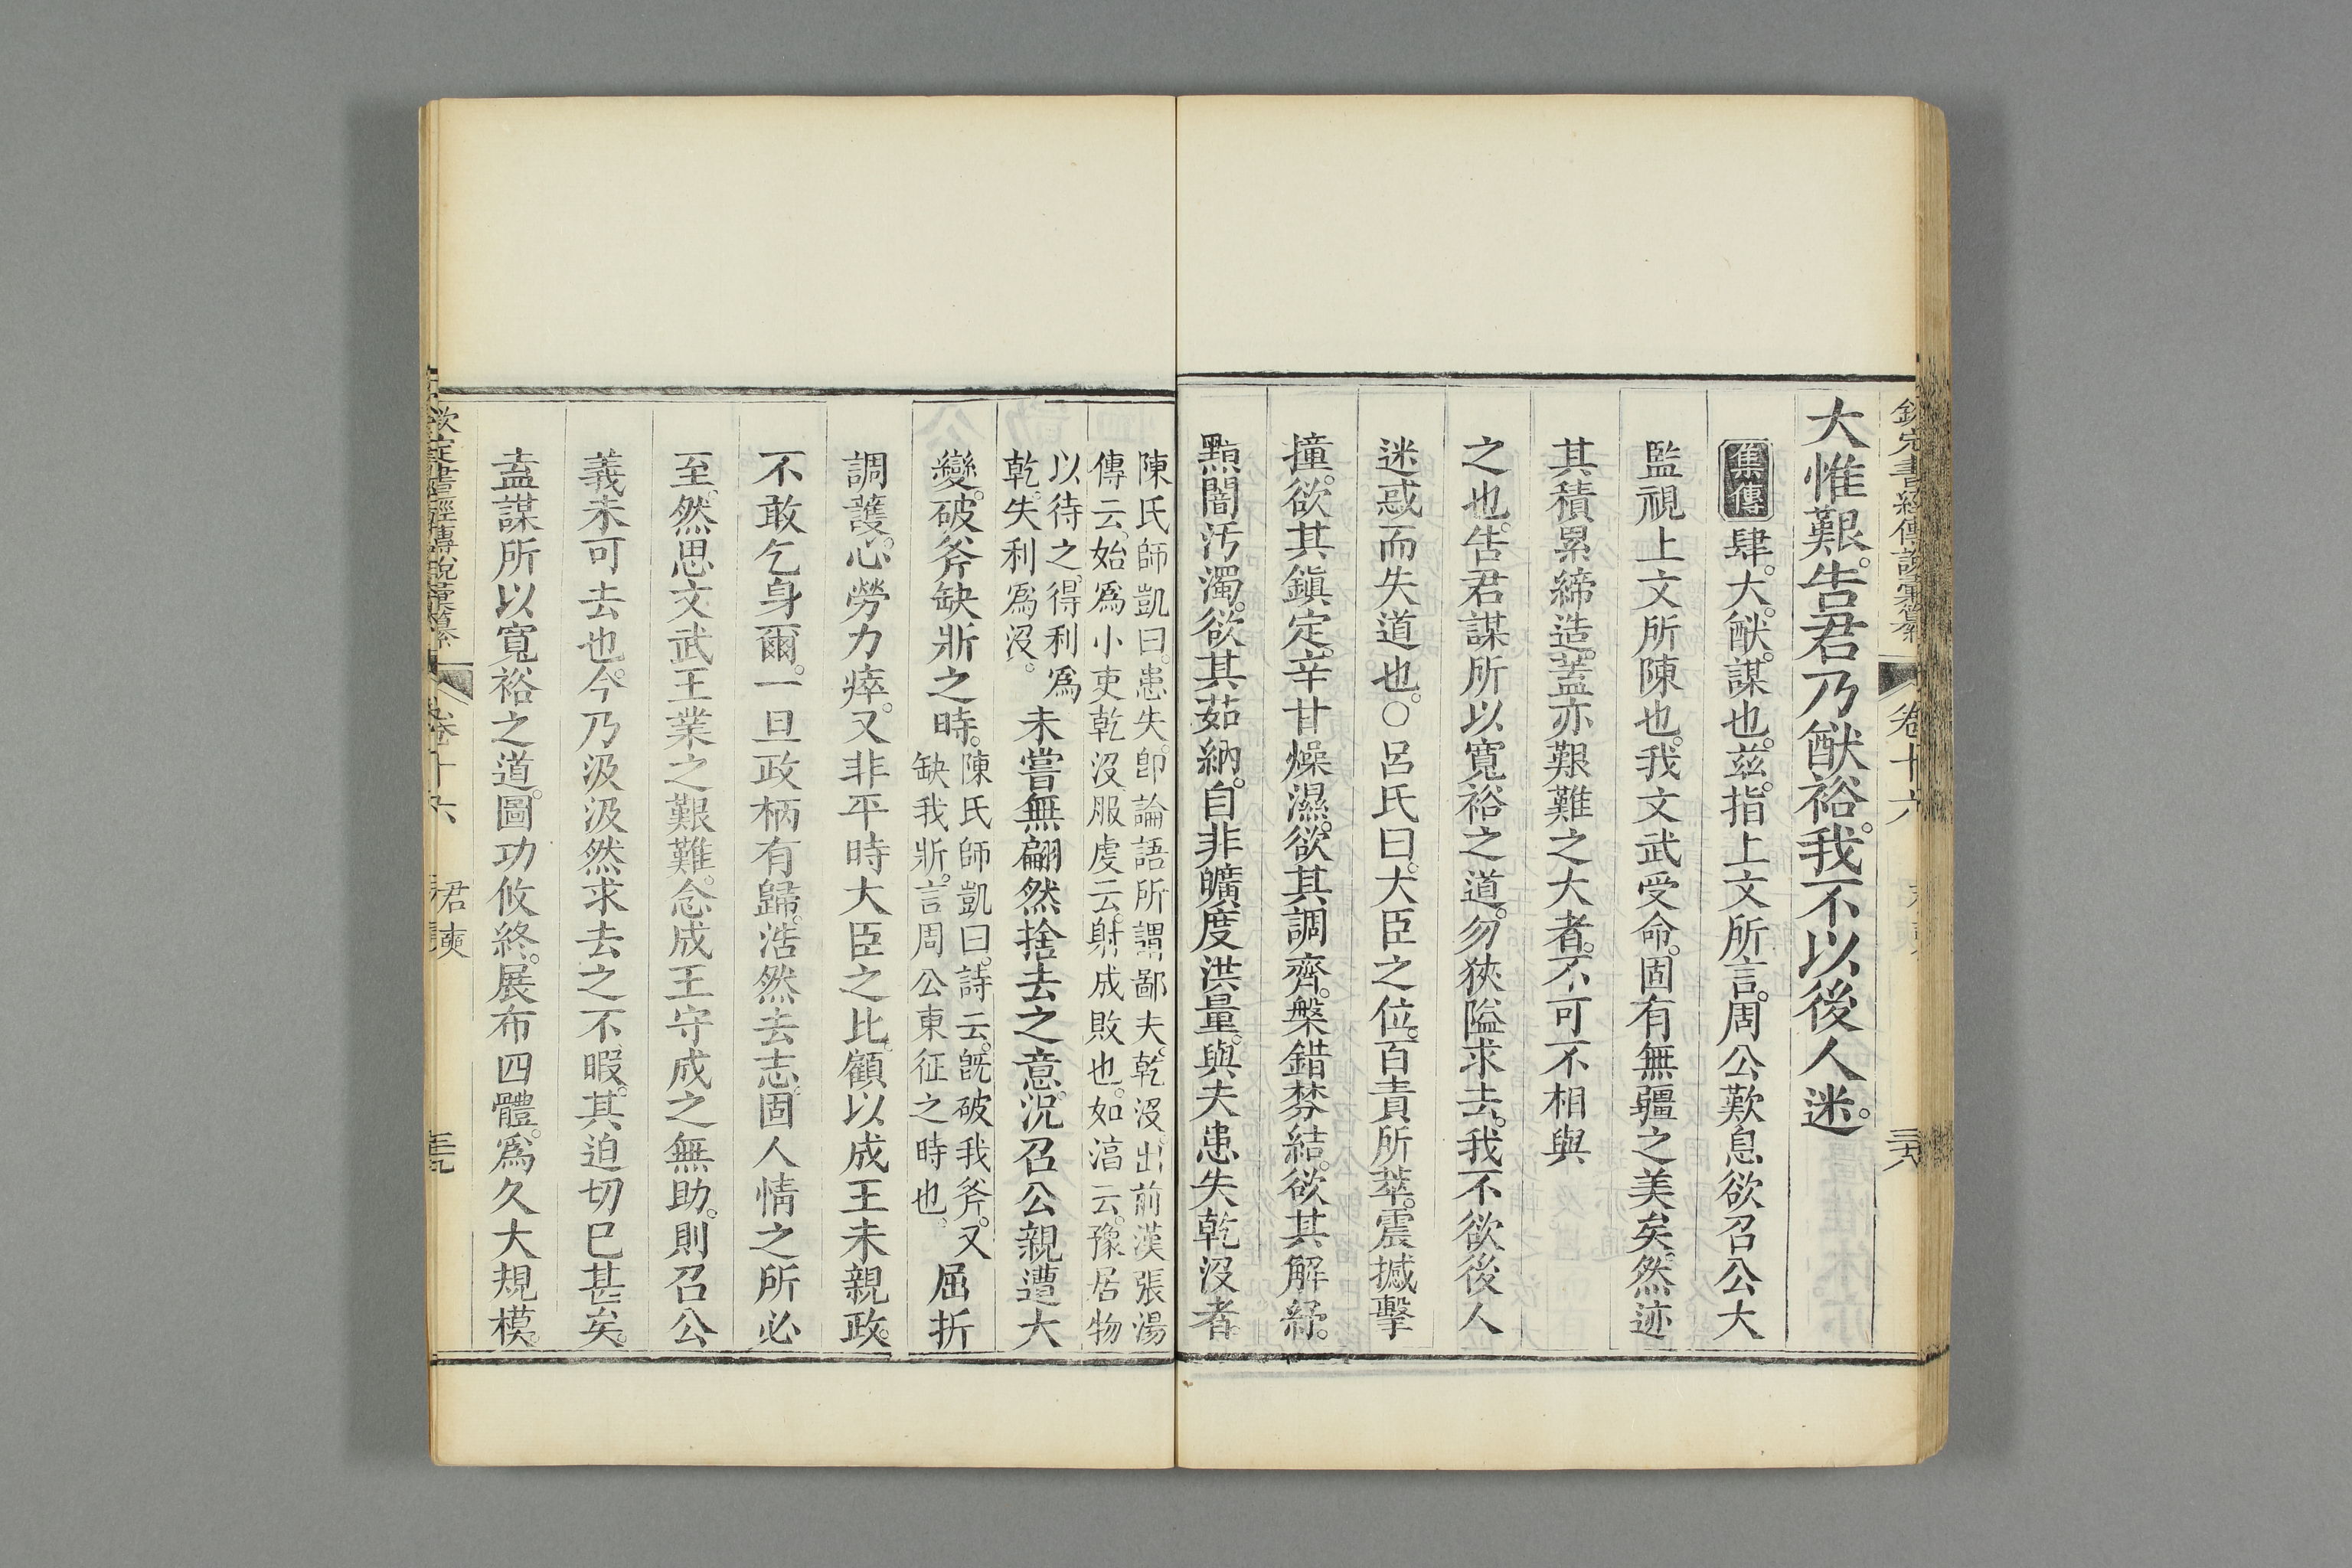 欽定書經傳說彙纂 卷十六 三十八
大惟艱。告君乃猷裕。我不以後人迷。
集傳 肆。大。猷。謀也。茲。指上文所言。周公歎息欲召公大
監視上文所陳也。我文武受命。固有無疆之美矣。然迹
其積累締造。蓋亦艱難之大者。不可不相與
之也。告君謀所以寬裕之道。勿狹隘求去。我不欲後人
迷惑而失道也。○呂氏曰。大臣之位。百責所萃。震撼擊
撞。欲其鎮定。辛甘燥濕。欲其調齊。槃錯棼結。欲其解紓。
黯闇汚濁。欲其茹納。自非曠度洪量。與夫患失乾沒者
陳氏師凱曰。患失。卽論語所謂鄙夫。乾沒。出前漢張湯
傳云。始爲小吏乾沒。服虔云。射成敗也。如淳云。豫居物
以待之。得利爲
乾。失利爲沒。
未嘗無翩然捨去之意。況召公親遭大
變。破斧缺斨之時。
陳氏師凱曰。詩云。旣破我斧。又
缺我斨。言周公東征之時也。
屈折
調護。心勞力瘁。又非平時大臣之比。顧以成王未親政。
不敢乞身爾。一旦政柄有歸。浩然去志。固人情之所必
至。然思文武王業之艱難。念成王守成之無助。則召公
義未可去也。今乃汲汲然求去之不暇。其迫切已甚矣。
盍謀所以寬裕之道。圖功攸終。展布四體。爲久大規模。
欽定書經傳說彙纂 卷十六 君奭